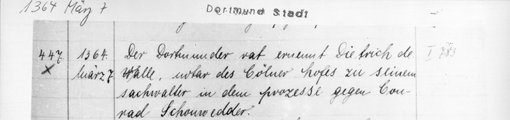 1364 März 7
Dortmund Stadt
447. 1364. Der Dortmunder rat ernennt Dietrich de
März 7 Walle, notar des Cölner hofes zu seinem
sachwalter in dem prozesse gegen Con-
rad Schonwedder.